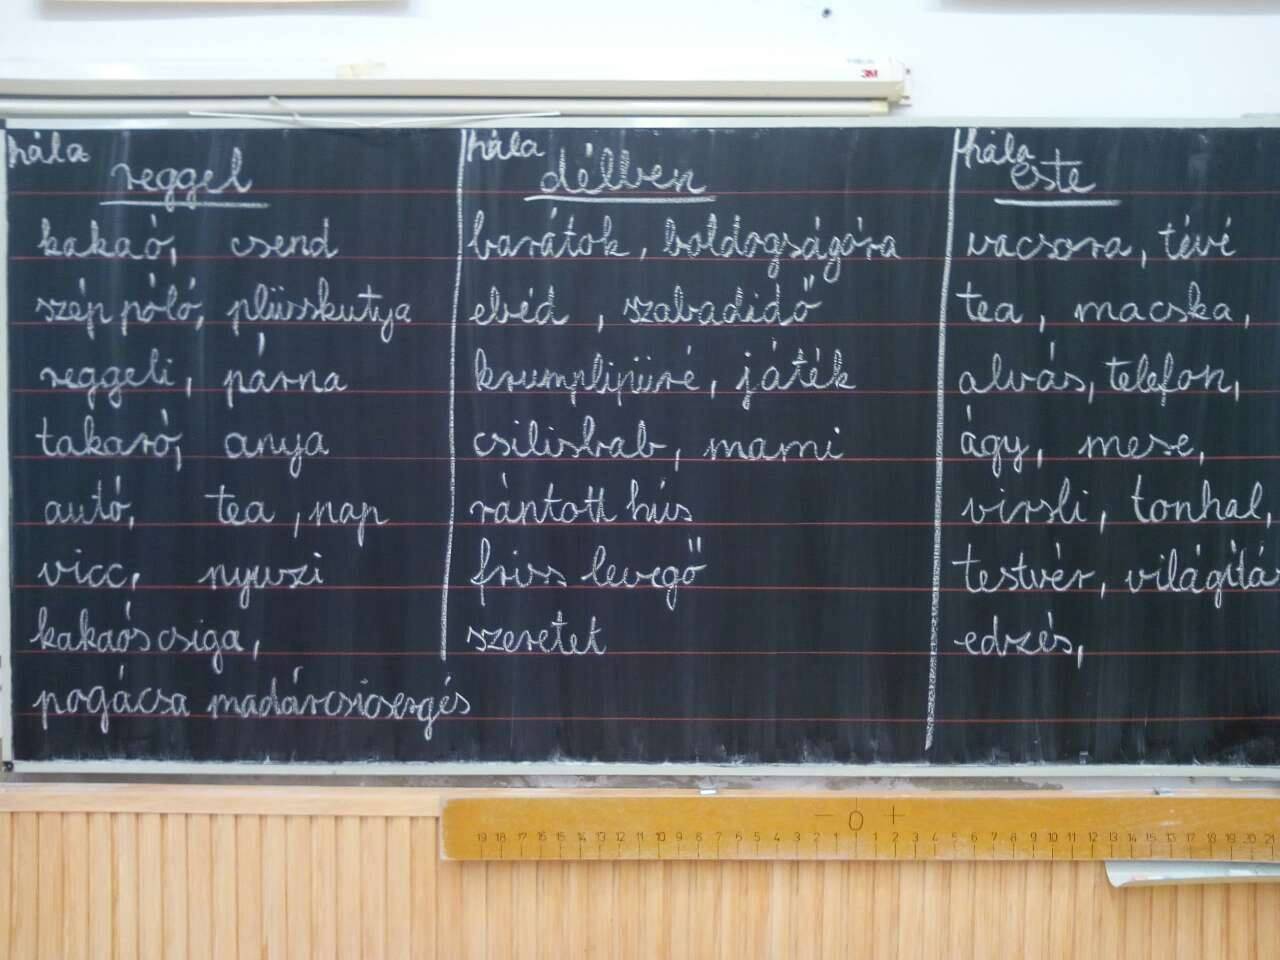 3M
hála
reggel
kakaó, csend
szép póló, plüsskutya
reggeli, párna
takaró, anya
autó, tea, nap
vicc, nyuszi
kakaós csiga,
pogácsa madárcsicsergés
hála
délben
barátok, boldogságóra
ebéd, szabadidő
krumplipüré, játék
csilisbab, mami
rántott hús
friss levegő
szeretet
hála
este
vacsora, tévé
tea, macska,
alvás, telefon,
ágy, mese,
virsli, tonhal,
testvér, világítás
edzés,
- 0 +
19 18 17 16 15 14 13 12 11 10 9 8 7 6 5 4 3 2 1 1 2 3 4 5 6 7 8 9 10 11 12 13 14 15 16 17 18 19 20 21